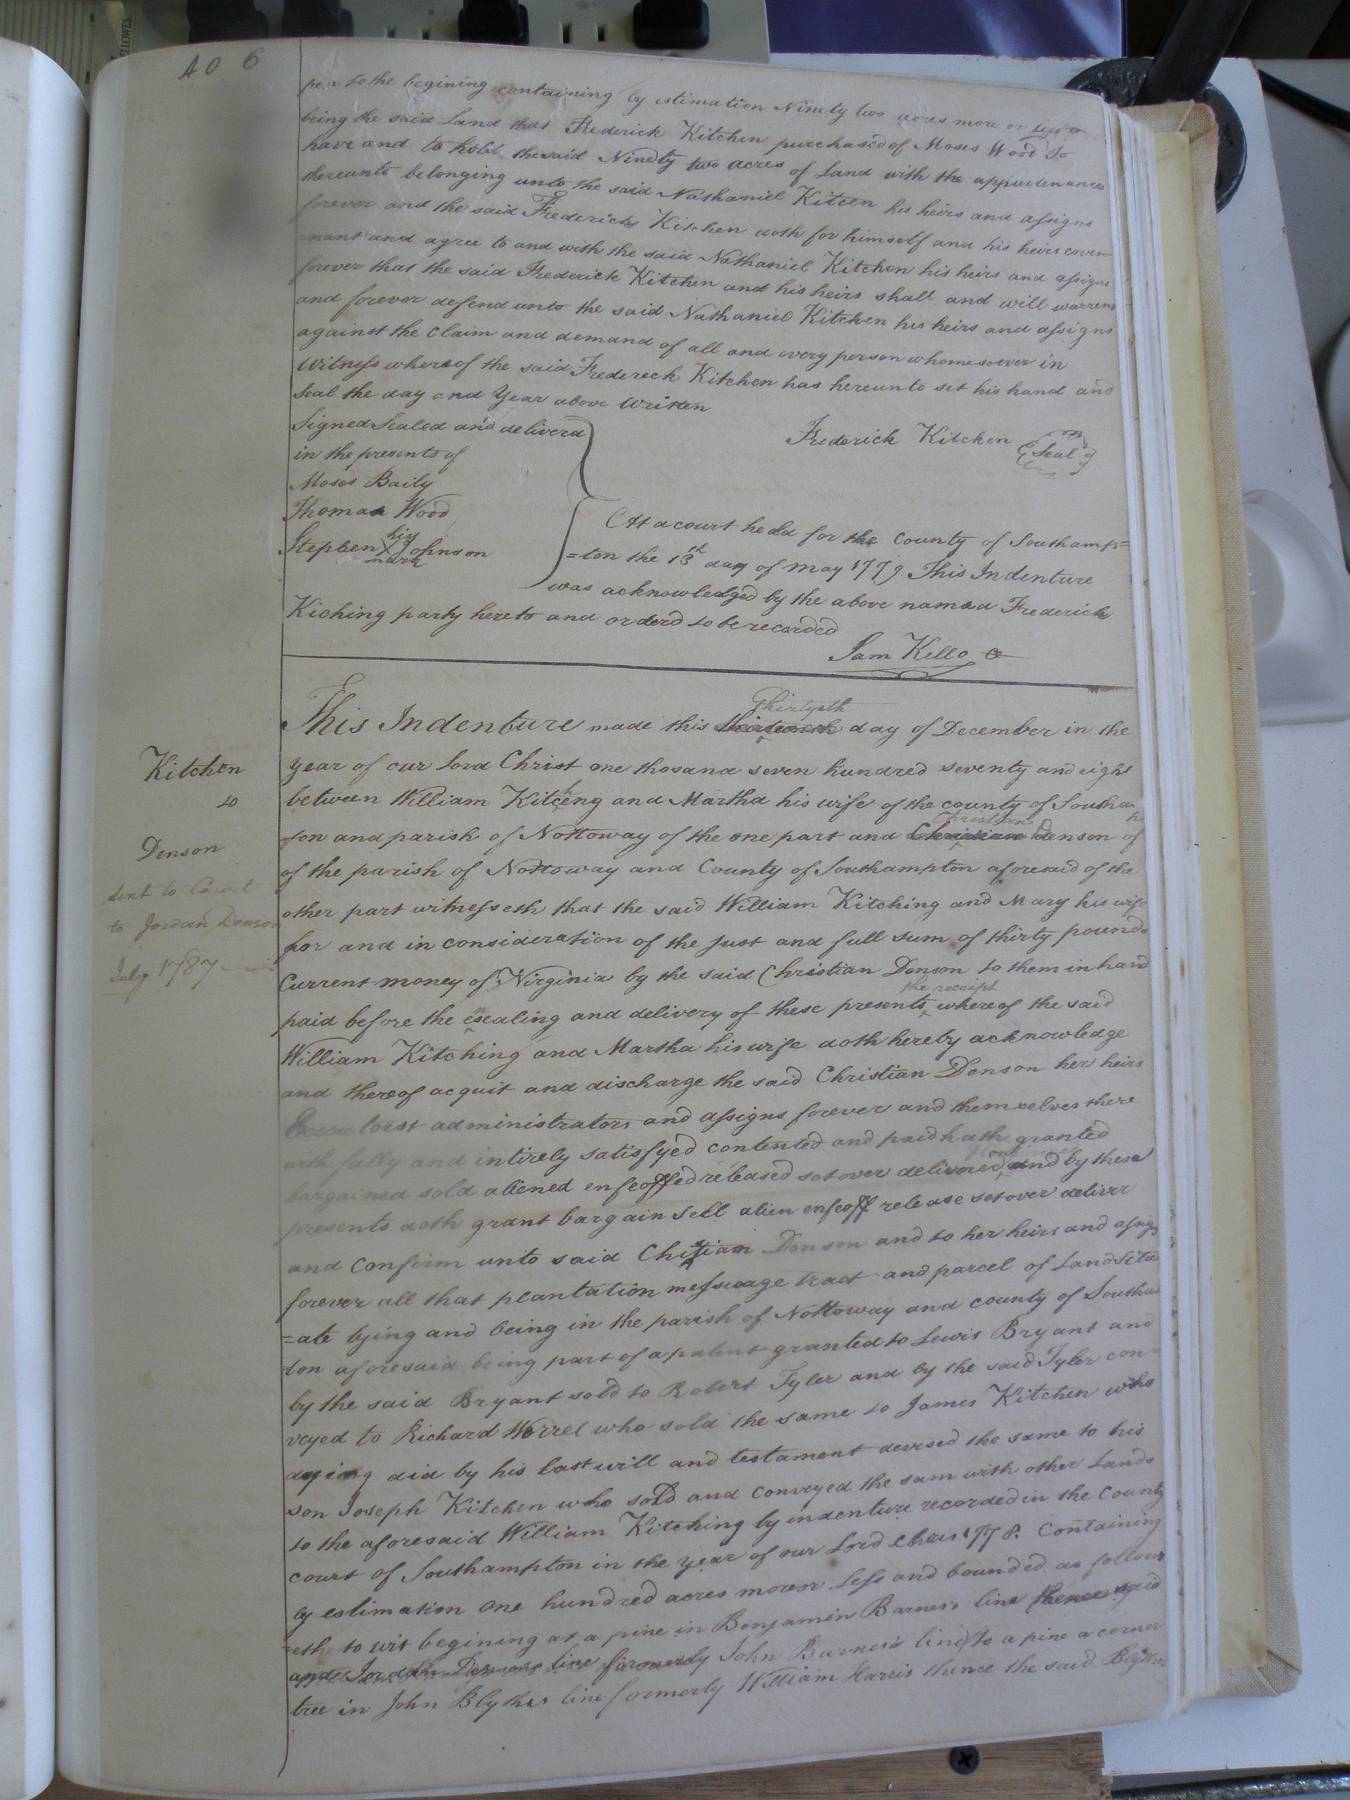 406
pin to the begining containing by estimation Ninety two acres more or less
being the said Land that Frederick Kitchen purchased of Moses Wood To
have and to hold the said Ninety two acres of Land with the appurtenances
thereunto belonging unto the said Nathaniel Kitcen his heirs and assigns
forever and the said Frederick Kitchen doth for himself and his heirs coven
nant and agree to and with the said Nathaniel Kitchen his heirs and assigns
forever that the said Frederick Kitchen and his heirs shall and will warrent
and forever defend unto the said Nathaniel Kitchen his heirs and assigns
against the Claim and demand of all and every person whomesoever in
Witness whereof the said Fredereck Kitchen has hereunto set his hand and
Seal the day and Year above Written
Signed Sealed and deliverd
in the presents of
Moses Baily
Thomas Wood
Stephen his X mark Johnson
Frederick Kitchen Seal
At a court held for the County of Southamp=
=ton the 13th day of May 1779 This Indenture
was acknowledged by the above named Frederick
Kiching party hereto and orderd to be recorded
Sam Kello
Kitchen
to
Denson
Sent to Court
to Jordan Denson
July 1787
This Indenture made this Thirtyeth day of December in the
year of our lord Christ one thosand seven hundred seventy and eight
between William Kitcheng and Martha his wife of the county of Southam
ton and parish of Nottoway of the one part and Christian Denson of
of the parish of Nottoway and County of Southampton aforesaid of the
other part witnesseth that the said William Kitching and Mary his wife
for and in consideration of the just and full sum of thirty pounds
Current money of Virginia by the said Christian Denson to them in hand
paid before the ensealing and delivery of these presents the receipt whereof the said
William Kitching and Martha his wife doth hereby acknowledge
and thereof acquit and discharge the said Christian Denson her heirs
administrators and assigns forever and themselves there
with fully and intirely satisfyed contented and paid hath granted
bargained sold aliened enfeoffed released setover delivered and by these
presents doth grant bargain Sell alien enfeoff release setover deliver
and Confirm unto said Chistian Denson and to her heirs and assigs
forever all that plantation messuage tract and parcel of Land Situ
=ate lying and being in the parish of Nottoway and county of Southam
ton aforesaid being part of a patent granted to Lewis Bryant and
by the said Bryant sold to Robert Tyler and by the said Tyler con
veyed to Richard Worrel who sold the same to James Kitchen who
dying did by his last will and testament devised the same to his
son Joseph Kitchen who sold and conveyed the sam with other Lands
to the aforesaid William Kitching by indenture recorded in the County
court of Southampton in the year of our Lord 1778. Containing
by estimation One hundred acres more or less and bounded as follow
=eth to wit begining at a pine in Benjamin Barnes's line
line formerly John Barnes's line to a pine a corner
tree in John Blythes line formerly William Harris thence the said Blythes